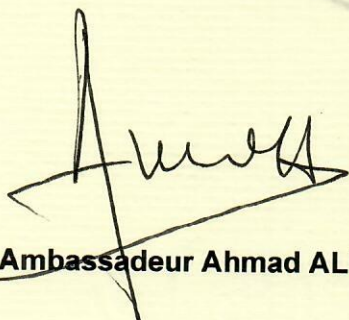 Ambassadeur Ahmad AL